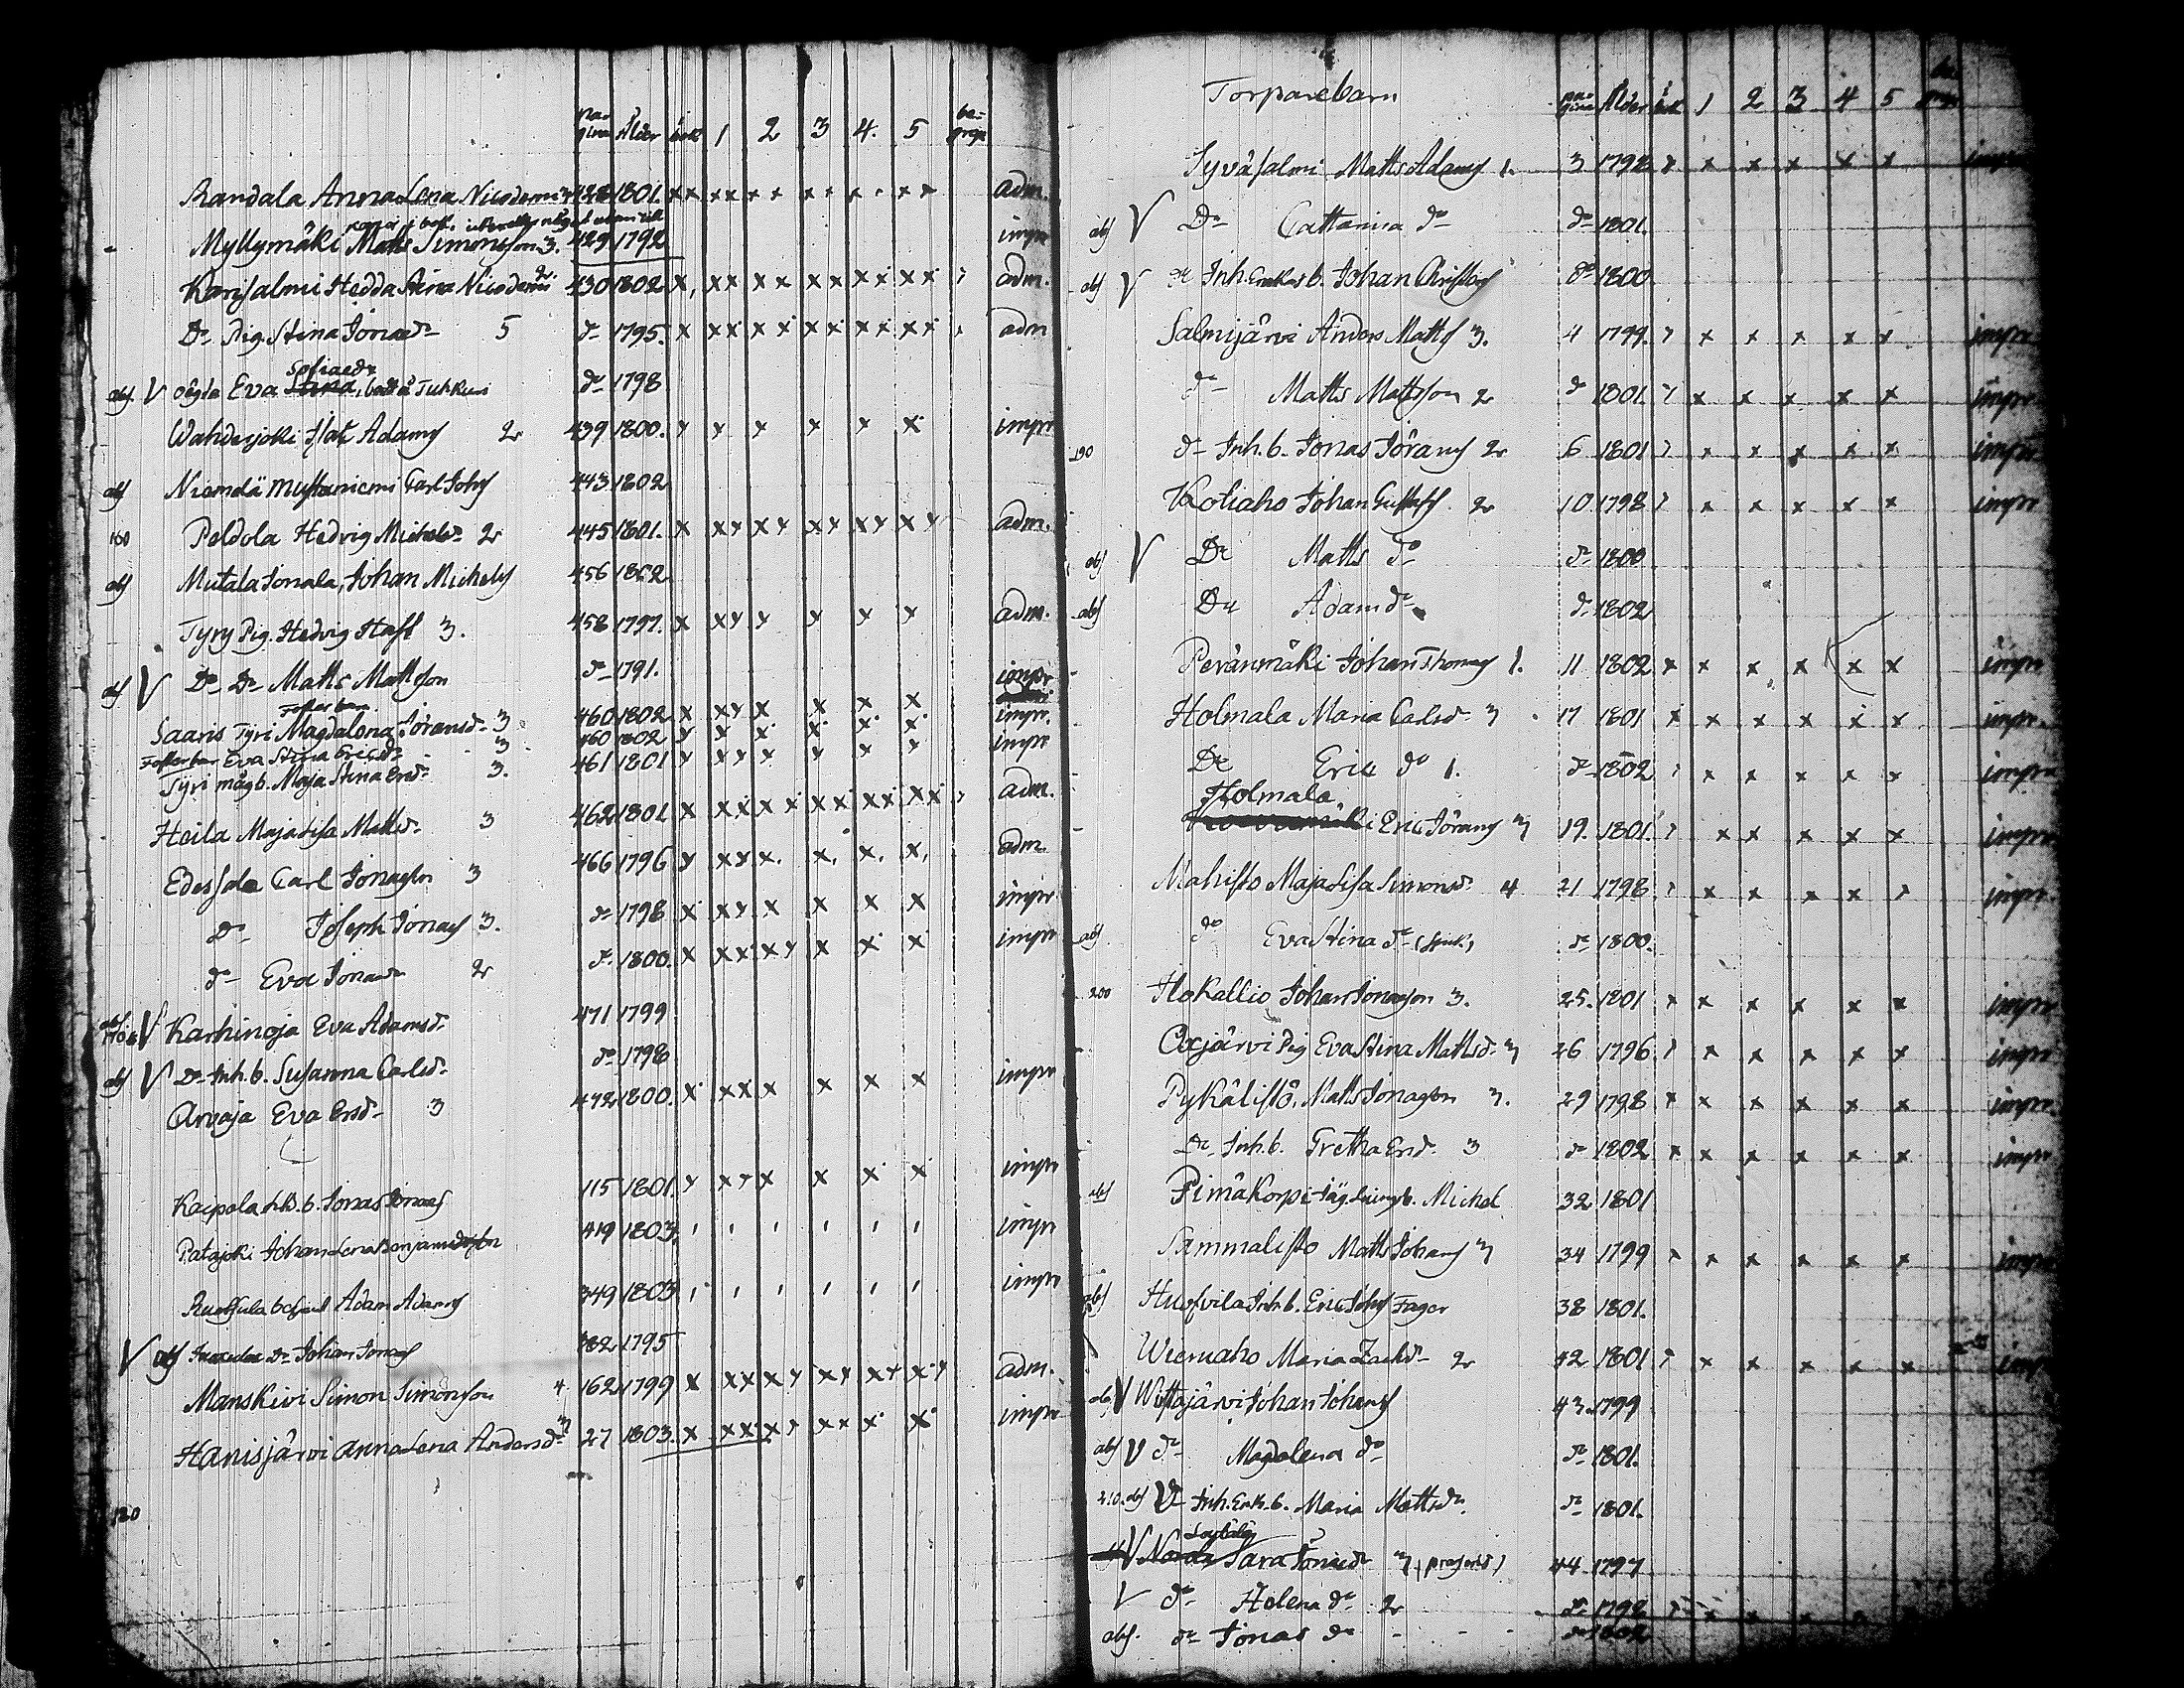 pagina Ålder bok 1 2 3 4. 5 begrep
Randala Anna Lena Nicodemi 428 1801. x x x x x x x x x x x adm.
Myllymäki Matts Simonsson 3. 429 1792 impr
Karsalmi Hedda Stina Nicodemi dr 430 1802 x, x x x x x x x x x x adm.
Do Pig. Stina Jonaedr 5 do 1795. x x x x x x x x x x x adm
Sofiaedr
abs V Eva do 1798
Wahderjoki Isac Adams 2 439 1800. x x x x x x impr
abs Niemelä Mustaniemi Carl Johs 443 1802
160 Peldola Hedvig Michelsdr 2 445 1801. x x x x x x x x x x x adm.
abs Mutala Jonala, Johan Michels 456 1802
Tyry Pig. Hedvig Staf 3. 458 1797. x x x x x x x adm.
abs V Do Do Matts Mattson do 1791. impr
Foster barn
Saaris Tyri Magdalena Göransdr 3 460 1802 x x x x x x x impr.
Fosterbar Eva Stina Ericsdr 3 460 1802 x x x x x x impr
Tyri mågb. Maja Stina Ersdr 3. 461 1801 x x x x x x x
Heila Maja Lisa Mattsdr 3 462 1801 x x x x x x x x x x x adm.
Edessalo Carl Jonasson 3 466 1796 x x x x. x. x. x. adm.
Do Joseph Jonass 3. do 1798 x x x x x x x impr
do Eva Jonaedr 2 do 1800. x x x x x x x x impr
170 abs V Karhinoja Eva Adamsdr 471 1799
abs V Do Inh. b. Susanna Carlsdr do 1798
Arvaja Eva Ersdr 3 472 1800. x x x x x x x impr
Kaipola Inh. b. Jonas Jonass 115 1801. x x x x x x x impr
Patajoki Johan 419 1803. impr
Adam Adams 349 1803 impr
V abs Do Johan Jonass 382 1795
Manskivi Simon Simonsson 4 162 1799 x x x x x x x x x x x adm.
Hanisjärvi Anna Lena Andersdr 3 27 1803. x x x x x x x x x impr
180
Torparebarn
pagina Ålder bok 1 2 3 4 5 begrep
Syväsalmi Matts Adams 1. 3 1792 x x x x x impr
abs V Do Cattarina do do 1801.
abs V do Inh. Enkas b. Johan Christ do 1800
Salmijärvi Anders Matts 3. 4 1799. x x x x x impr
do Matts Mattsson 2 do 1801. x x x x x impr
190 do Inh. b. Jonas Görans 2 6 1801 x x x x x impr
Kotiaho Johan Gustafs 2 10 1798 x x x x x impr
abs V Do Matts do do 1800
abs Do Adam do do 1802
Peränmäki Johan Thomas 1. 11 1802 x x x x x x impr
Holmala Maria Carlsdr 3 17 1801 x x x x x x impr.
Do Eric do 1. do 1802 x x x x x impr
Holmala
Eric Görans 3 19. 1801. x x x x x impr
Mahisto Maja Lisa Simonsdr 4 21 1798 x x x x impr.
abs do Eva Stina do (sjuk) do 1800.
200 Hokallio Johan Jonasson 3. 25. 1801 x x x x x x impr
Oxjärvi Pig Eva Stina Mattsdr 3 26 1796. x x x x x impr
Pykälistö. Matts Jonasson 3. 29 1798 x x x x x x impr.
Do Inh. b. Gretha Ersdr 3 do 1802 x x x x x x impr
abs Pimäkorpi Michel 32 1801
Sammalisto Matts Johans 3 34 1799 x x x x x impr
abs Inh. b. Eric Johs Fager 38 1801.
Wieruaho Maria Zachdr 2 42 1801 x x x x x impr
abs V Johan Johans 43. 1799
abs V do Magdalena do do 1801.
210. abs V Do Inh. Enk. b. Maria Mattsdr do 1801.
V Sara Jonaedr 3 44. 1797
V do Helena do 2 do 1798 x x x
abs. do Jonas do do 1802